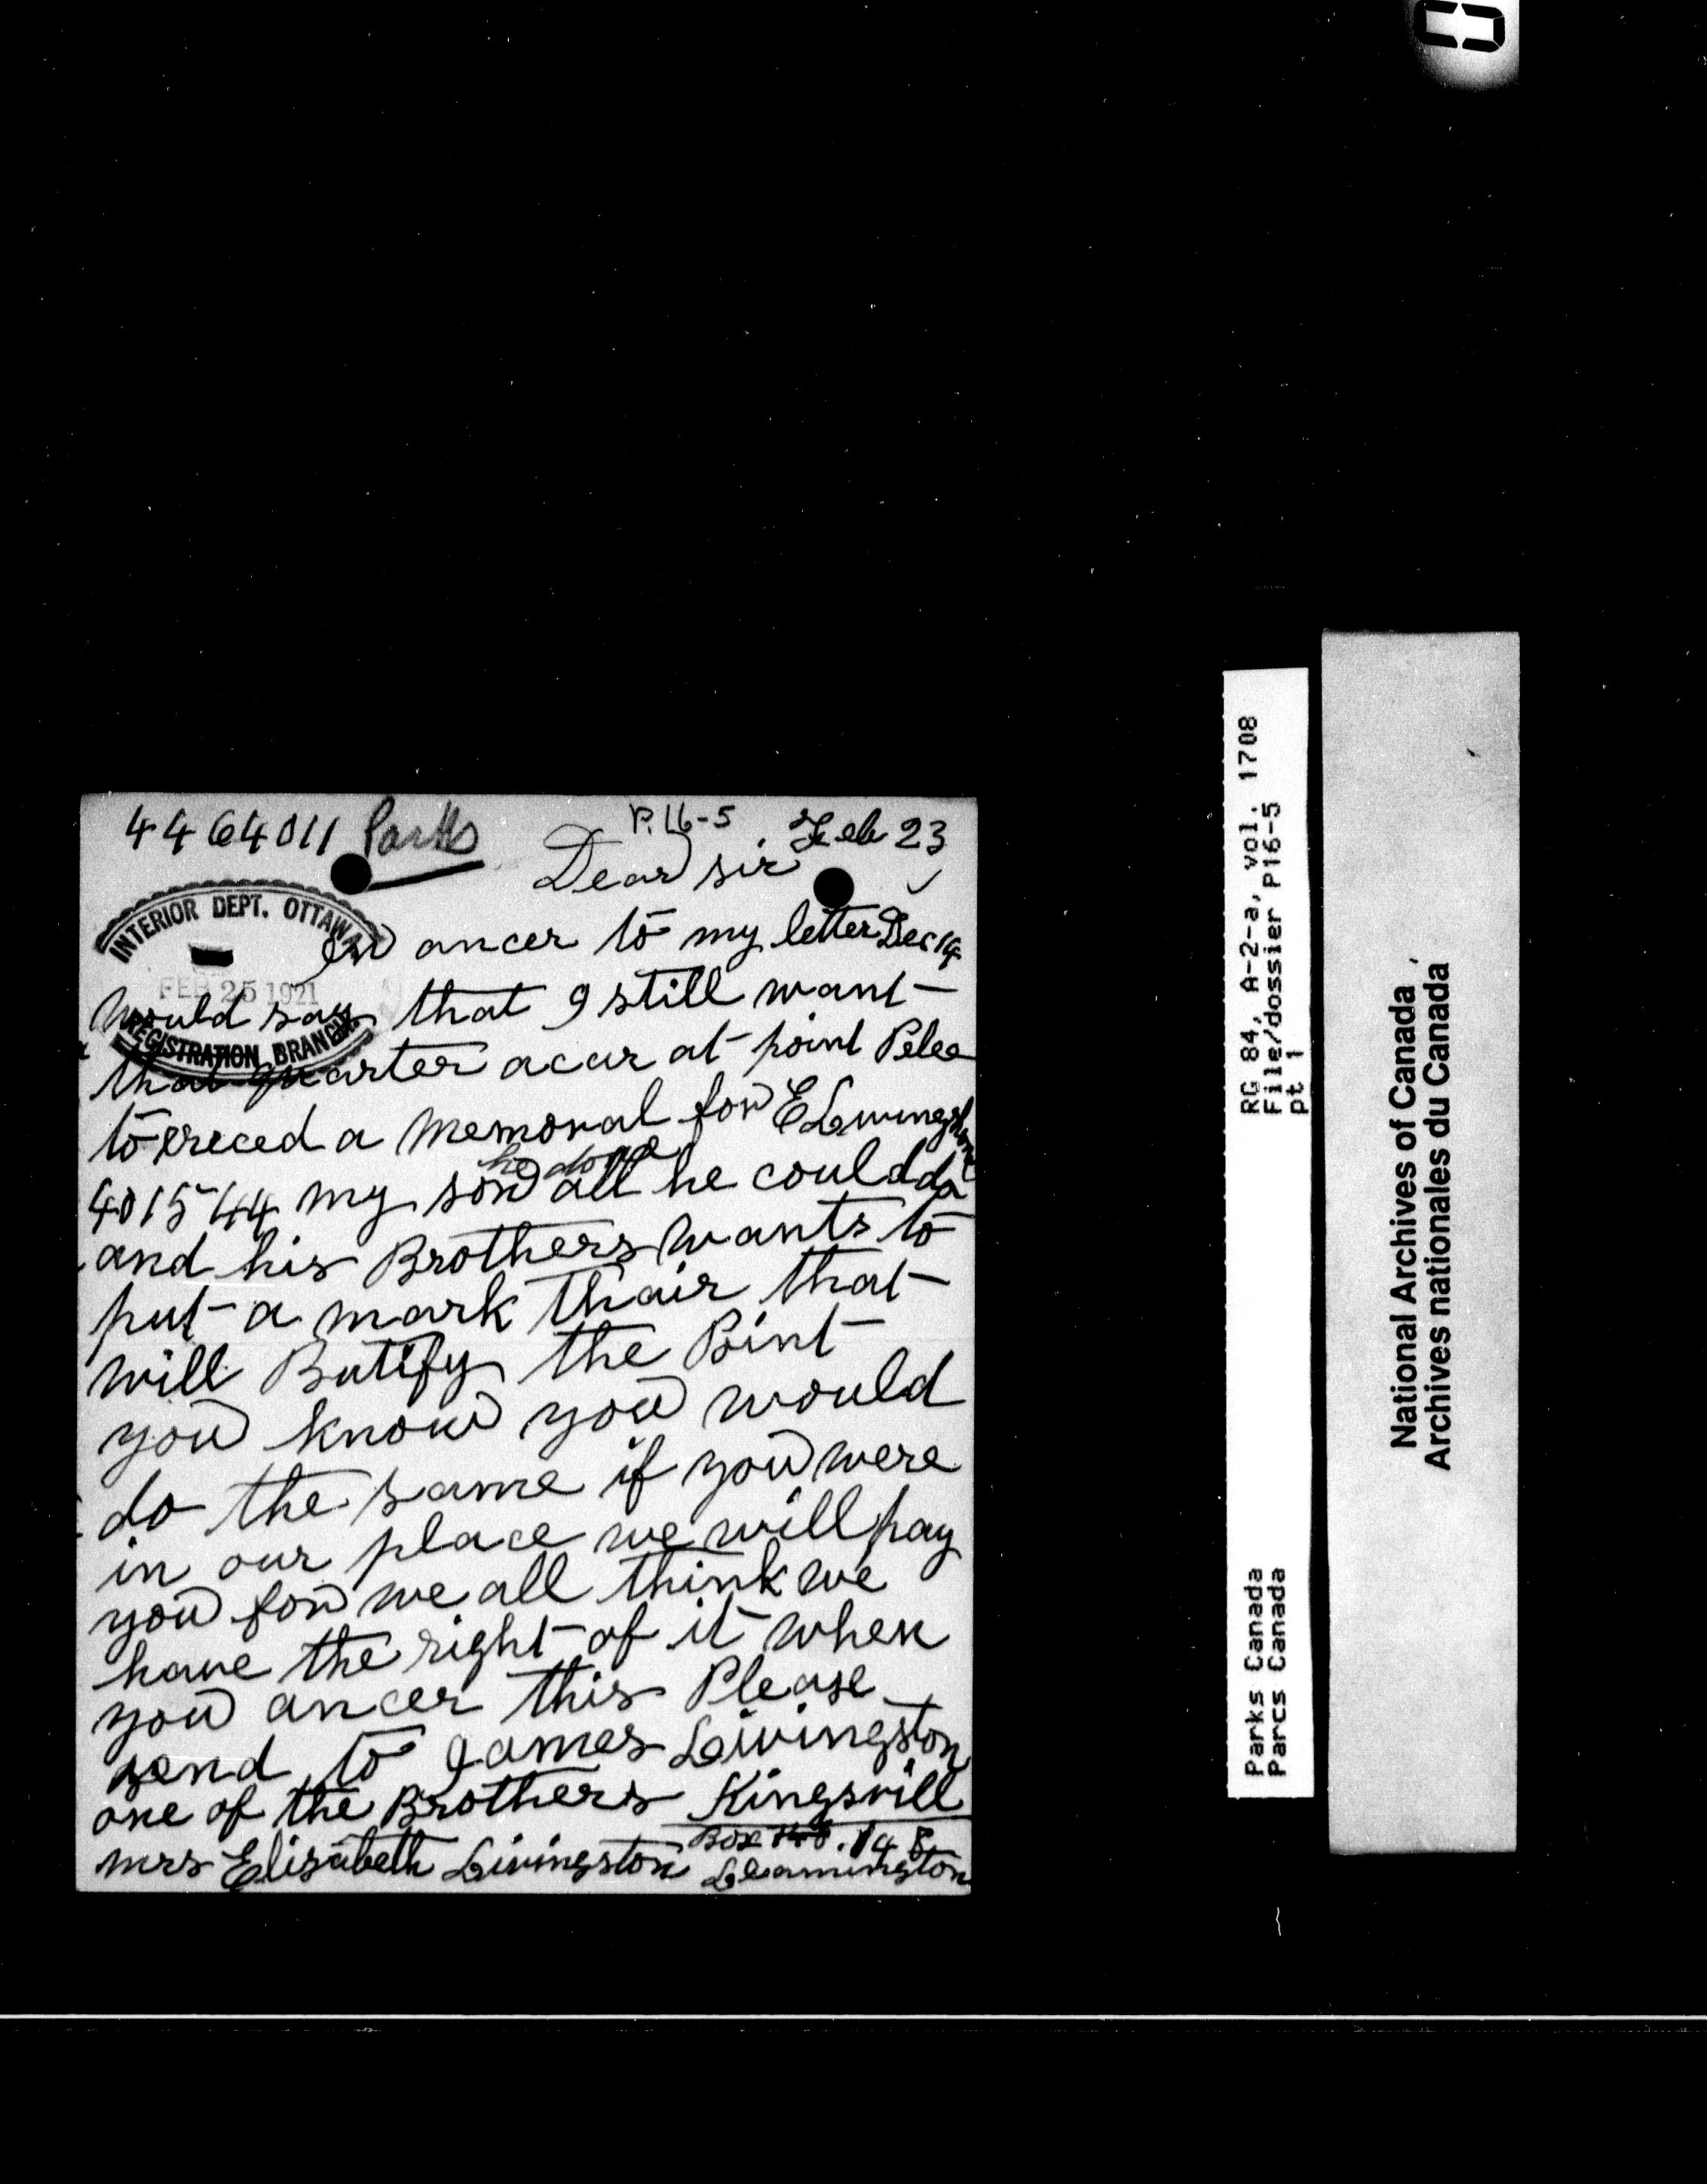 4464011 Parks P.16-5 Feb 23
Dear sir
INTERIOR DEPT. OTTAWA
FEB 25 1921
REGISTRATION BRANCH.
In ancer to my letter Dec 14
would say that I still want
that quarter acur at point Pelee
to ereced a Memoral for E Livingston
he done
401544 my son all he could do
and his Brothers wants to
put a mark thair that
will Butify the Point
you know you would
do the same if you were
in our place we will pay
you for we all think we
have the right of it when
you ancer this Please
send to James Livingston
one of the Brothers Kingsvill
Box 148
mrs Elisabeth Livingston Leamington
RG 84, A-2-a, vol. 1708
File/dossier P16-5
pt 1
Parks Canada
Parcs Canada
National Archives of Canada
Archives nationales du Canada